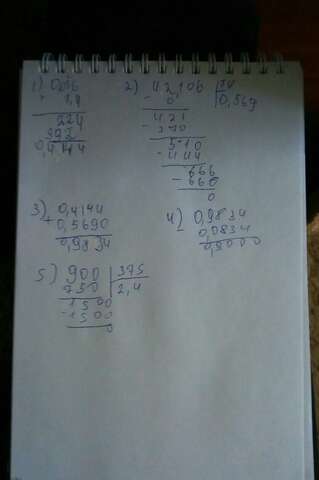 1) 0,56
1,4
224
392
0,4144
2) 42,106 74
- 0 0,569
421
- 370
510
- 444
666
- 660
0
3) 0,4144
+ 0,5690
0,9834
4) 0,9834
- 0,0834
0,9000
5) 900 375
750 2,4
1500
- 1500
0